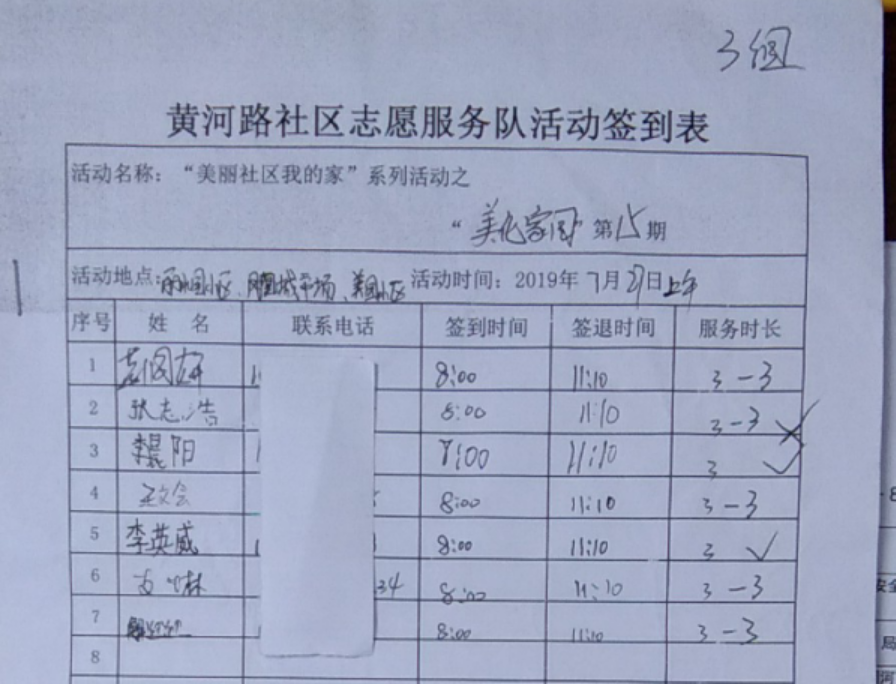 3個
黄河路社区志愿服务队活动签到表
活动名称：“美丽社区我的家”系列活动之
“美化家园”第15期
活动地点: 小区、凤凰城平场、美国小区 活动时间：2019年7月27日上午
序号 姓 名 联系电话 签到时间 签退时间 服务时长
1 8:00 11:10 3 -3
2 张志浩 8:00 11:10 3 -3
3 李晨阳 8:00 11:10 3 ✓
4 王文会 8:00 11:10 3 -3
5 李英威 8:00 11:10 3 ✓
6 34 8:00 11:10 3 -3
7 8:00 11:10 3 -3
8